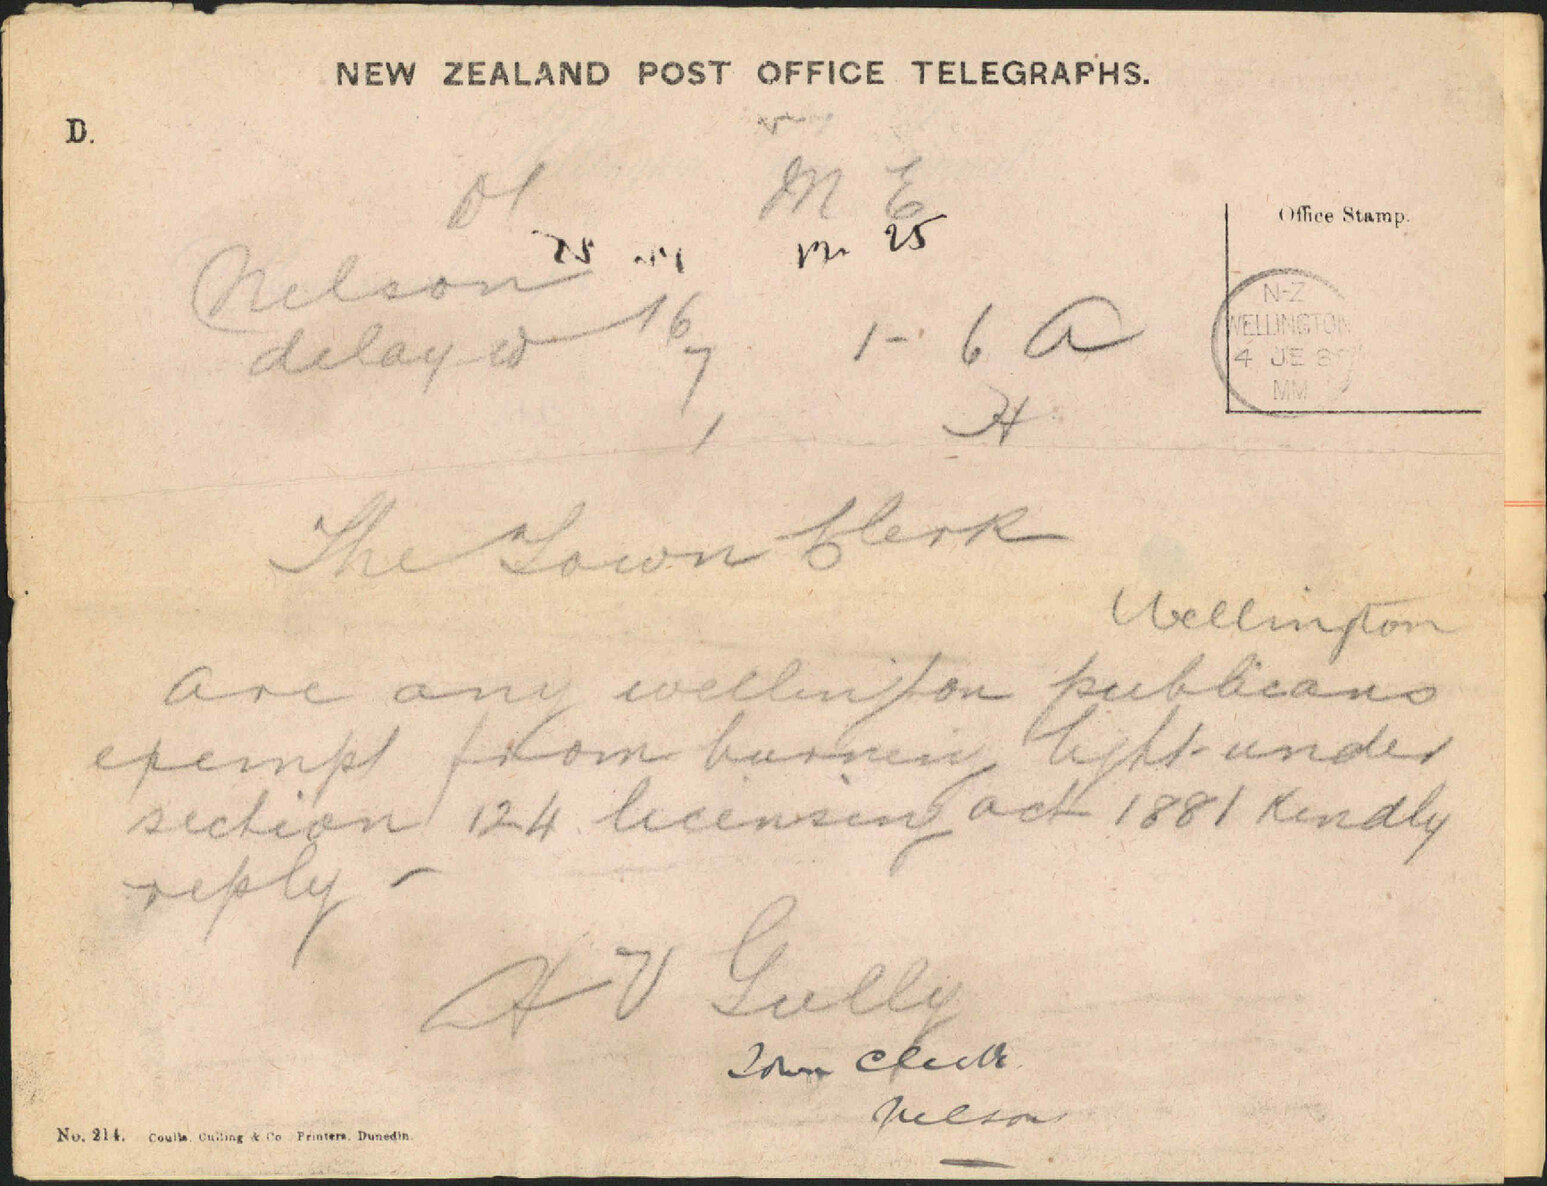 NEW ZEALAND POST OFFICE TELEGRAPHS.
D.
M E
25
Office Stamp.
Nelson
delay w 16
7
1
1- 6 A
H
N-Z
WELLINGTON
4 JE 8
MM
The Town Clerk
Wellington
are any wellington publicans
exempt from burning light under
section 124 licensing act 1881 Kindly
reply -
H V Gully
Town Clerk
Nelson
No. 214. Coulls, Culling & Co Printers, Dunedin.